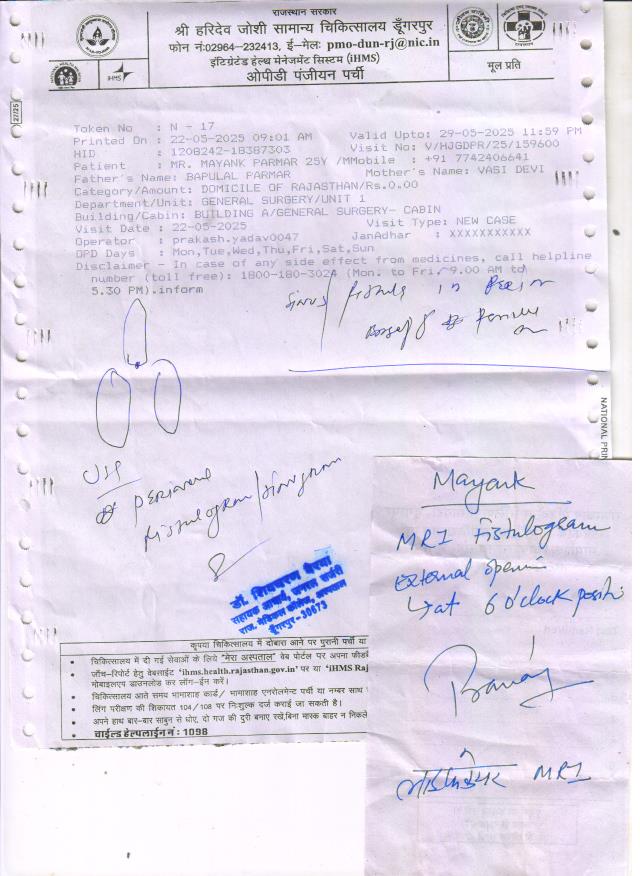 राजस्थान सरकार
श्री हरिदेव जोशी सामान्य चिकित्सालय डूँगरपुर
फोन नं:02964-232413, ई-मेलः pmo-dun-rj@nic.in
इंटिग्रेटेड हेल्थ मेनेजमेंट सिस्टम (iHMS)
ओपीडी पंजीयन पर्ची
मूल प्रति
iHMS
27/25
Token No : N - 17
Printed On : 22-05-2025 09:01 AM Valid Upto: 29-05-2025 11:59 PM
HID : 1208242-18387303 Visit No: V/HJGDPR/25/159600
Patient : MR. MAYANK PARMAR 25Y /M Mobile : +91 7742406641
Father's Name: BAPULAL PARMAR Mother's Name: VASI DEVI
Category/Amount: DOMICILE OF RAJASTHAN/Rs.0.00
Department/Unit: GENERAL SURGERY/UNIT 1
Building/Cabin: BUILDING A/GENERAL SURGERY- CABIN
Visit Date : 22-05-2025 Visit Type: NEW CASE
Operator : prakash.yadav0047 JanAdhar : XXXXXXXXXXX
OPD Days : Mon,Tue,Wed,Thu,Fri,Sat,Sun
Disclaimer - In case of any side effect from medicines, call helpline
number (toll free): 1800-180-3024 (Mon. to Fri. 9.00 AM to
5.30 PM).inform
Sinus / fistula in
NATIONAL PRIN
fistulogram/sinogram
डॉ. शिवचरण बैरवा
सहायक आचार्य, जनरल सर्जरी
राज. मेडिकल कॉलेज, अस्पताल
डूँगरपुर-30673
Mayank
MRI Fistulogram
External
at 6 O'clock
MRI
कृपया चिकित्सालय में दोबारा आने पर पुरानी पर्ची या
चिकित्सालय में दी गई सेवाओं के लिये "मेरा अस्पताल" वेब पोर्टल पर अपना फीडब
जाँच-रिपोर्ट हेतु वेबसाईट 'ihms.health.rajasthan.gov.in' पर या 'iHMS Raj
मोबाइलएप डाउनलोड कर लॉग-ईन करें।
चिकित्सालय आते समय भामाशाह कार्ड/ भामाशाह एनरोलमेन्ट पर्ची या नम्बर साथ
लिंग परीक्षण की शिकायत 104/108 पर निःशुल्क दर्ज कराई जा सकती है।
अपने हाथ बार-बार साबुन से धोए, दो गज की दुरी बनाए रखे,बिना मास्क बाहर न निकले
चाईल्ड हेल्पलाईन नं : 1098